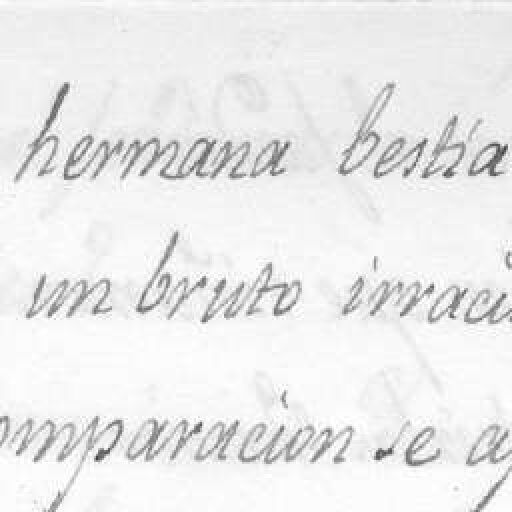 hermana bestia
un bruto irraci
omparacion se a